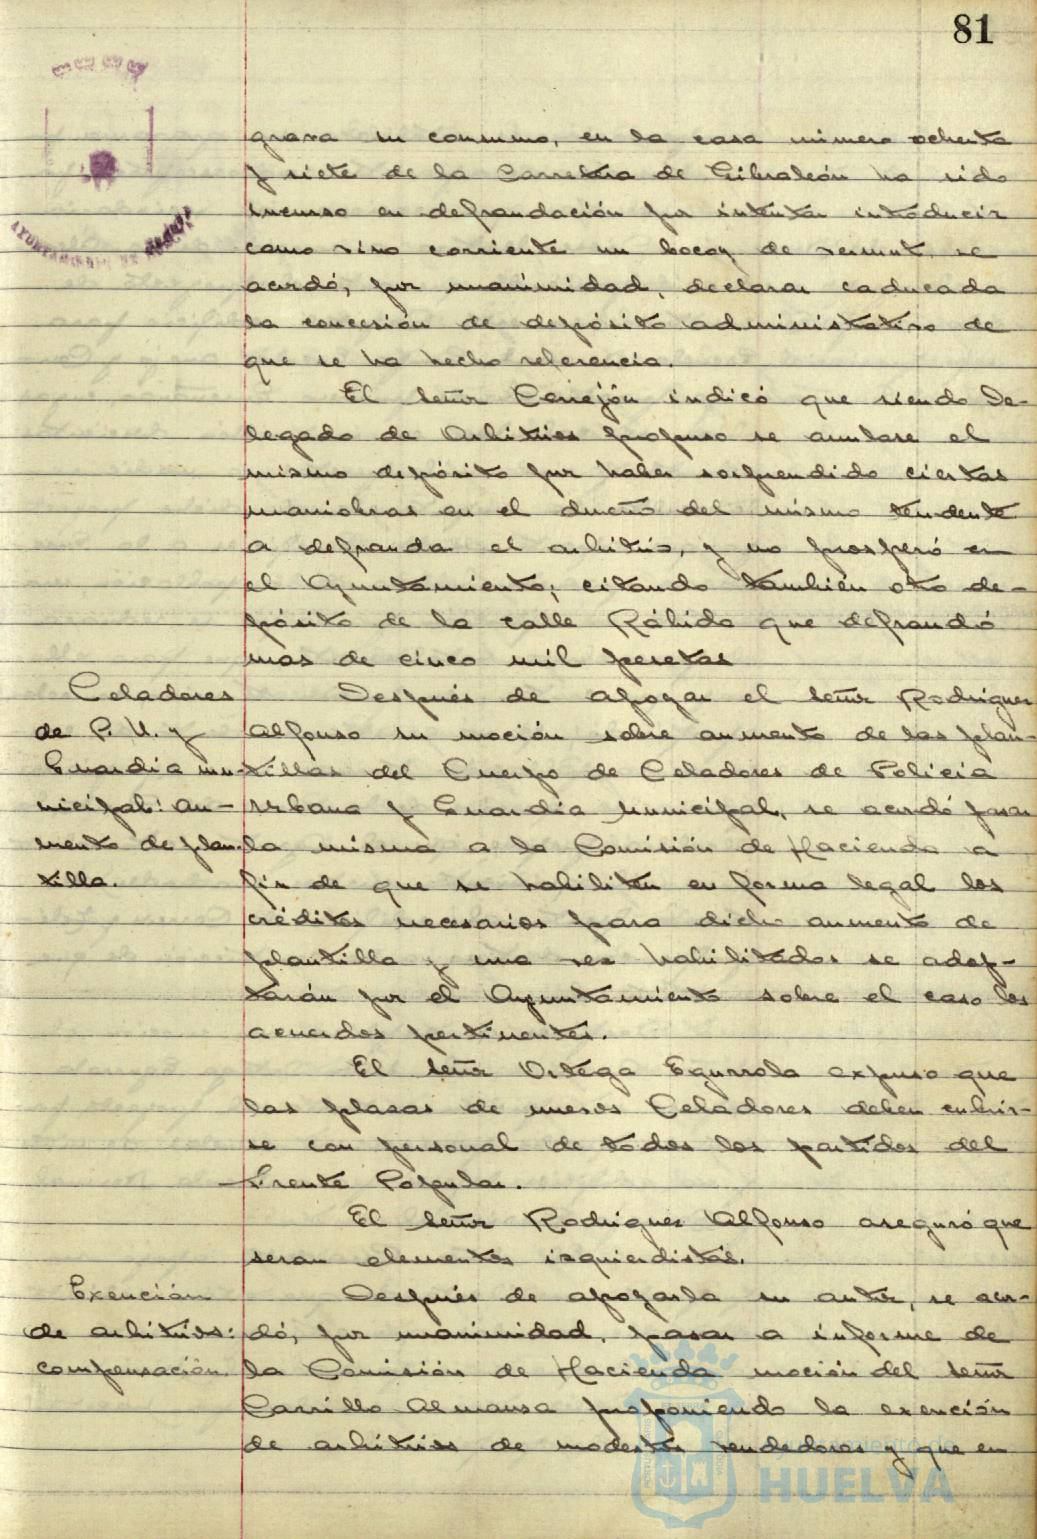 81
grava su consumo, en la casa número ochenta
y siete de la Carretera de Gibraleón ha sido
incurso en defraudación por intentar introducir
como vino corriente un bocoy de vermut, se
acordó, por unanimidad, declarar caducada
la concesión de depósito administrativo de
que se ha hecho referencia.
El señor Cerrejón indicó que siendo De-
legado de Arbitrios propuso se anulase el
mismo depósito por haber sorprendido ciertas
maniobras en el dueño del mismo tendente
a defraudar el arbitrio, y no prosperó en
el Ayuntamiento, citando también otro de-
pósito de la calle Rábida que defraudó
mas de cinco mil pesetas
Celadores
de P. U. y
Guardia mu-
nicipal: au-
mento de plan-
tilla.
Después de apoyar el señor Rodriguez
Alfonso su moción sobre aumento de las plan-
tillas del Cuerpo de Celadores de Policia
urbana y Guardia municipal, se acordó pasar
la misma a la Comisión de Hacienda a
fin de que se habiliten en forma legal los
créditos necesarios para dicho aumento de
plantilla y una vez habilitados se adop-
tarán por el Ayuntamiento sobre el caso los
acuerdos pertinentes.
El señor Ortega Egurrola expuso que
las plazas de nuevos Celadores deben cubrir-
se con personal de todos los partidos del
Frente Popular.
El señor Rodriguez Alfonso aseguró que
seran elementos izquierdistas.
Exención
de arbitrios:
compensación.
Después de apoyarla su autor, se acor-
dó, por unanimidad, pasar a informe de
la Comisión de Hacienda moción del señor
Carrillo Almansa proponiendo la exención
de arbitrios de modestos vendedores y que en
AYUNTAMIENTO DE HUELVA
HUELVA